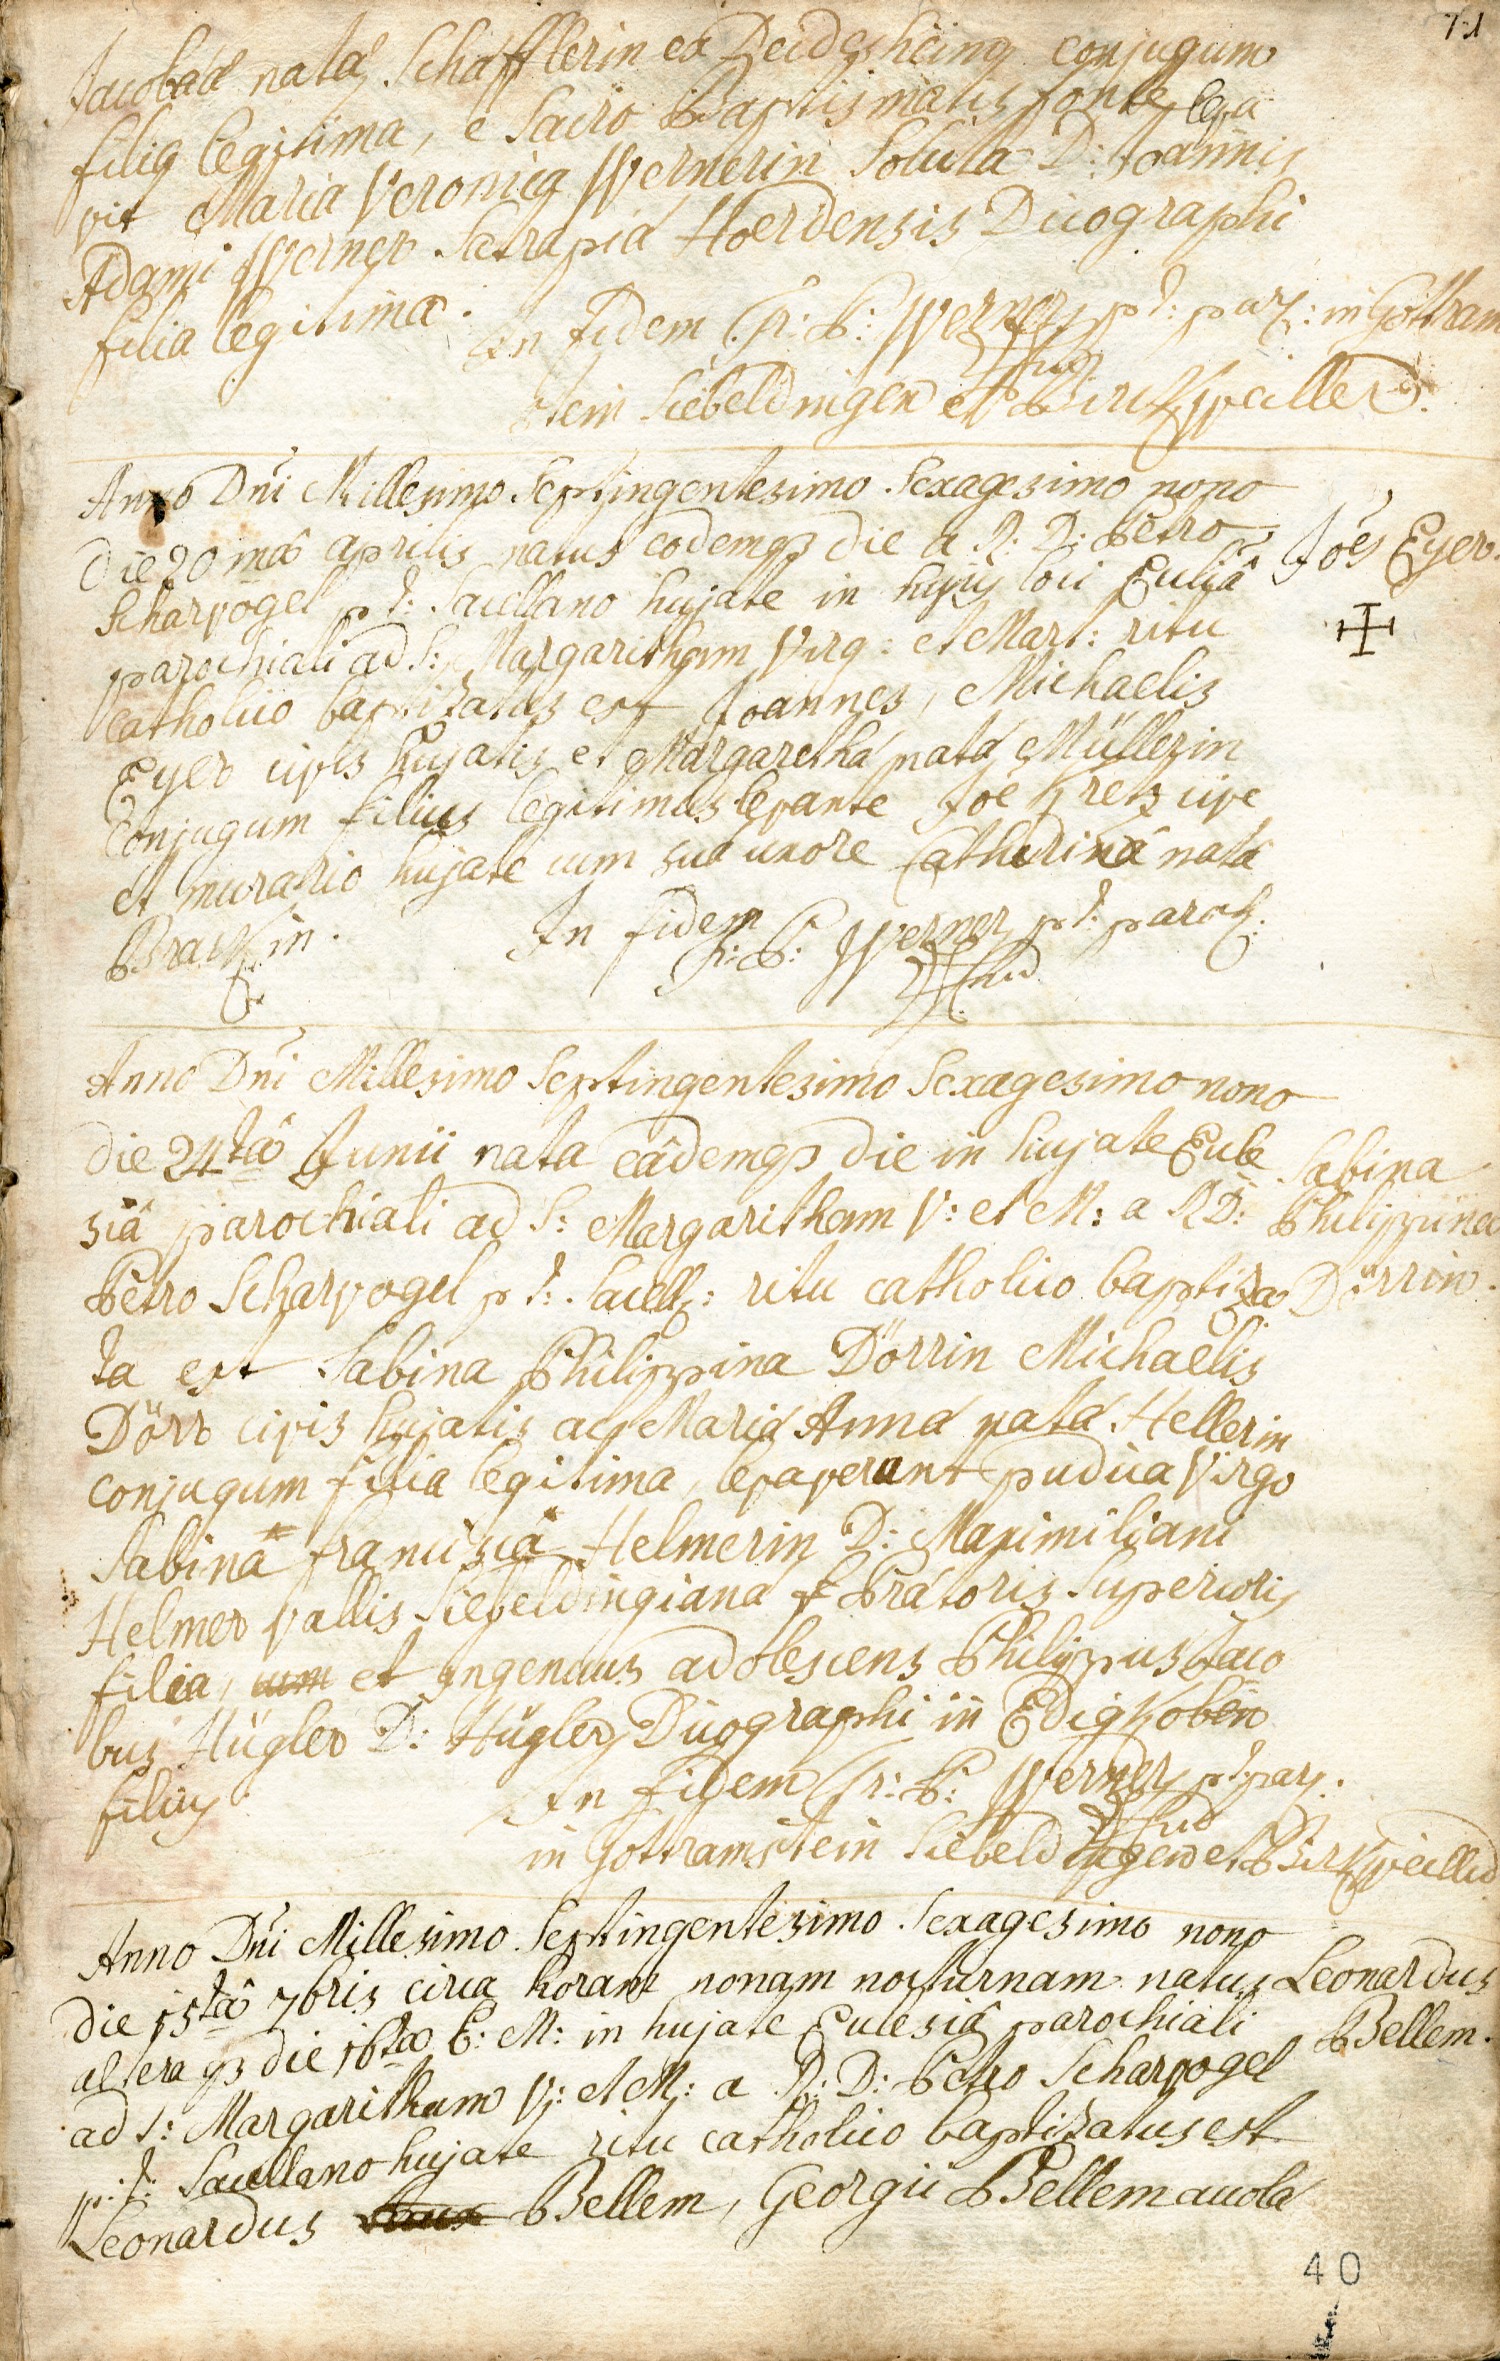 71
Jacobæ natæ Schafflerin ex Deidesheim conjugum
filia legitima, e Sacro Baptismatis fonte leva
vit Maria Veronica Wernerin Soluta D: Joannis
Adami Werner Satrapiæ Hoerdensis Dicographi
filia legitima.
In Fidem Fr: P: Werner p.t: par: in Gottram
stein Siebeldingen et Birckweiller.
Anno Dni Millesimo Septingentesimo Sexagesimo nono
die 20mâ aprilis natus eodemq die a R: D: Petro
Joes Eyer.
Scharvogel p.t: Sacellano hujate in hujus loci Eccliâ
parochiali ad S: Margaritham Virg: et Mart: ritu
catholico baptizatus est Joannes, Michaelis
Eyer civis hujatis et Margarethæ natæ Müllerin
Conjugum filius legitimus levante Joe Kretz cive
et murario hujate cum sua uxore Catharinâ natâ
Brackin.
In fidem
Fr: P: Werner p.t: paroch:
Anno Dni Millesimo Septingentesimo Sexagesimo nono
die 24tâ Junii nata eâdemq die in hujate Eccle
Sabina
siâ parochiali ad S: Margaritham V: et M: a R D:
Philippina
Petro Scharvogel p t: Sacell: ritu catholico baptiza
Dörrin.
ta est Sabina Philippina Dörrin Michaelis
Dörr civis hujatis ac Mariæ Annæ natæ Hellerin
conjugum filia legitima, levaverunt pudica Virgo
Sabina francisca Helmerin D: Maximiliani
Helmer vallis Siebeldingianæ Prætoris Superioris
filia, cum et ingenuus adolescens Philippus Jaco
bus Hügler D: Hügler Dicographi in Edigkoben
filius
In Fidem Fr: P: Werner p.t: par:
in Gottramstein Siebeldingen et Birckweiller
Anno Dni Millesimo Septingentesimo Sexagesimo nono
die 15tâ 7bris circa horam nonam nocturnam natus
Leonardus
altera q die 16ta e: M: in hujate Ecclesiâ parochiali
Bellem.
ad S: Margaritham V: et M: a R: D: Petro Scharvogel
p: t: Sacellano hujate ritu catholico baptizatus est
Leonardus Bellem, Georgii Bellem acola
40